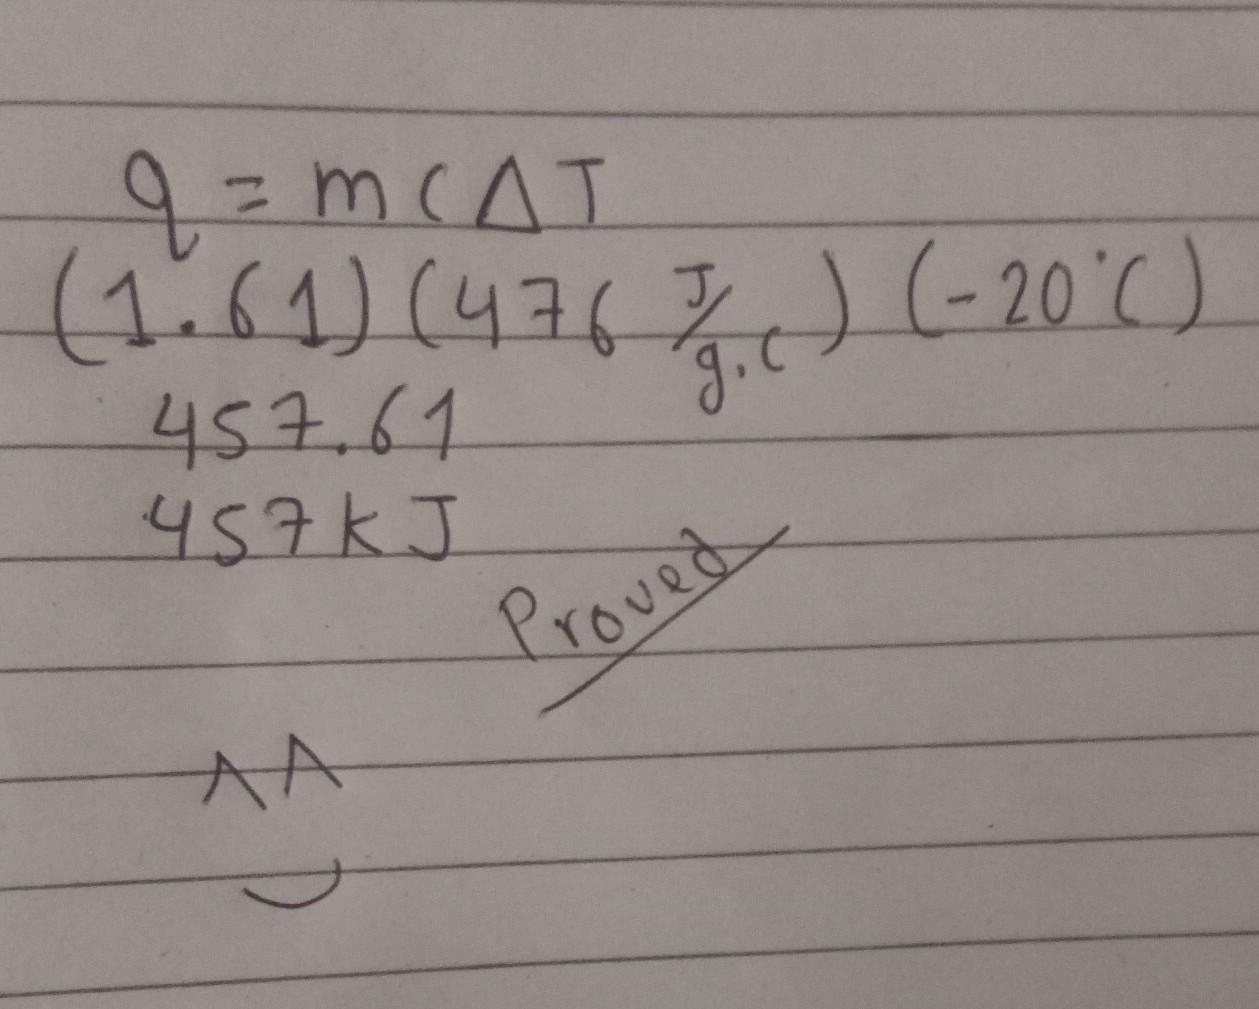 q = mCΔT
(1.61) (476 J/g.C) (-20°C)
457.61
457kJ
Proved